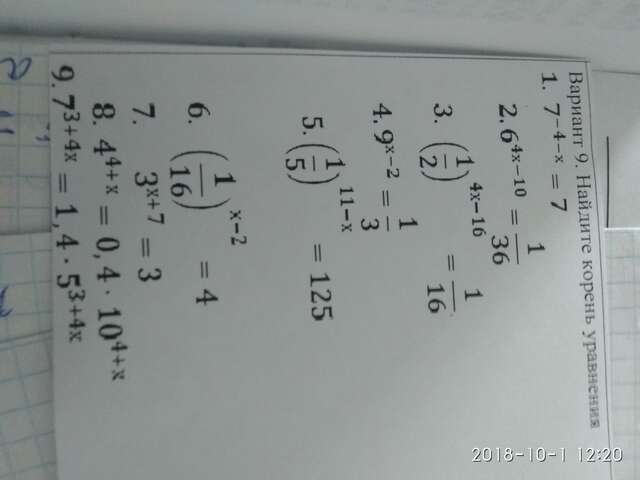 Вариант 9. Найдите корень уравнения
1. 7^{-4-x} = 7
2. 6^{4x-10} = \frac{1}{36}
3. (\frac{1}{2})^{4x-16} = \frac{1}{16}
4. 9^{x-2} = \frac{1}{3}
5. (\frac{1}{5})^{11-x} = 125
6. (\frac{1}{16})^{x-2} = 4
7. 3^{x+7} = 3
8. 4^{4+x} = 0,4 · 10^{4+x}
9. 7^{3+4x} = 1,4 · 5^{3+4x}
2018-10-1 12:20